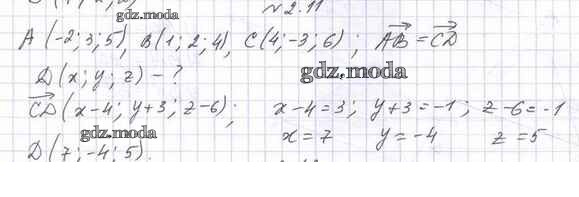 gdz.moda
№ 2.11
A (-2; 3; 5), B(1; 2; 4), C(4; -3; 6); AB→ = CD→
gdz.moda
D (x; y; z) - ?
CD→ (x-4; y+3; z-6); x-4=3; y+3=-1; z-6=-1
gdz.moda
x=7 y=-4 z=5
D (7; -4; 5).